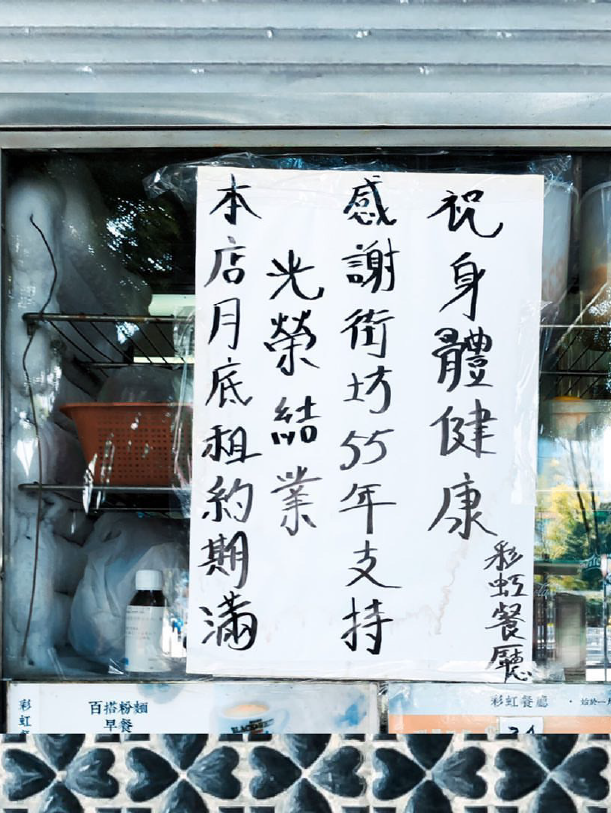 本店月底租約期滿
光榮結業
感謝街坊55年支持
祝身體健康
彩虹餐廳
彩虹
百搭粉麵
早餐
彩虹餐廳